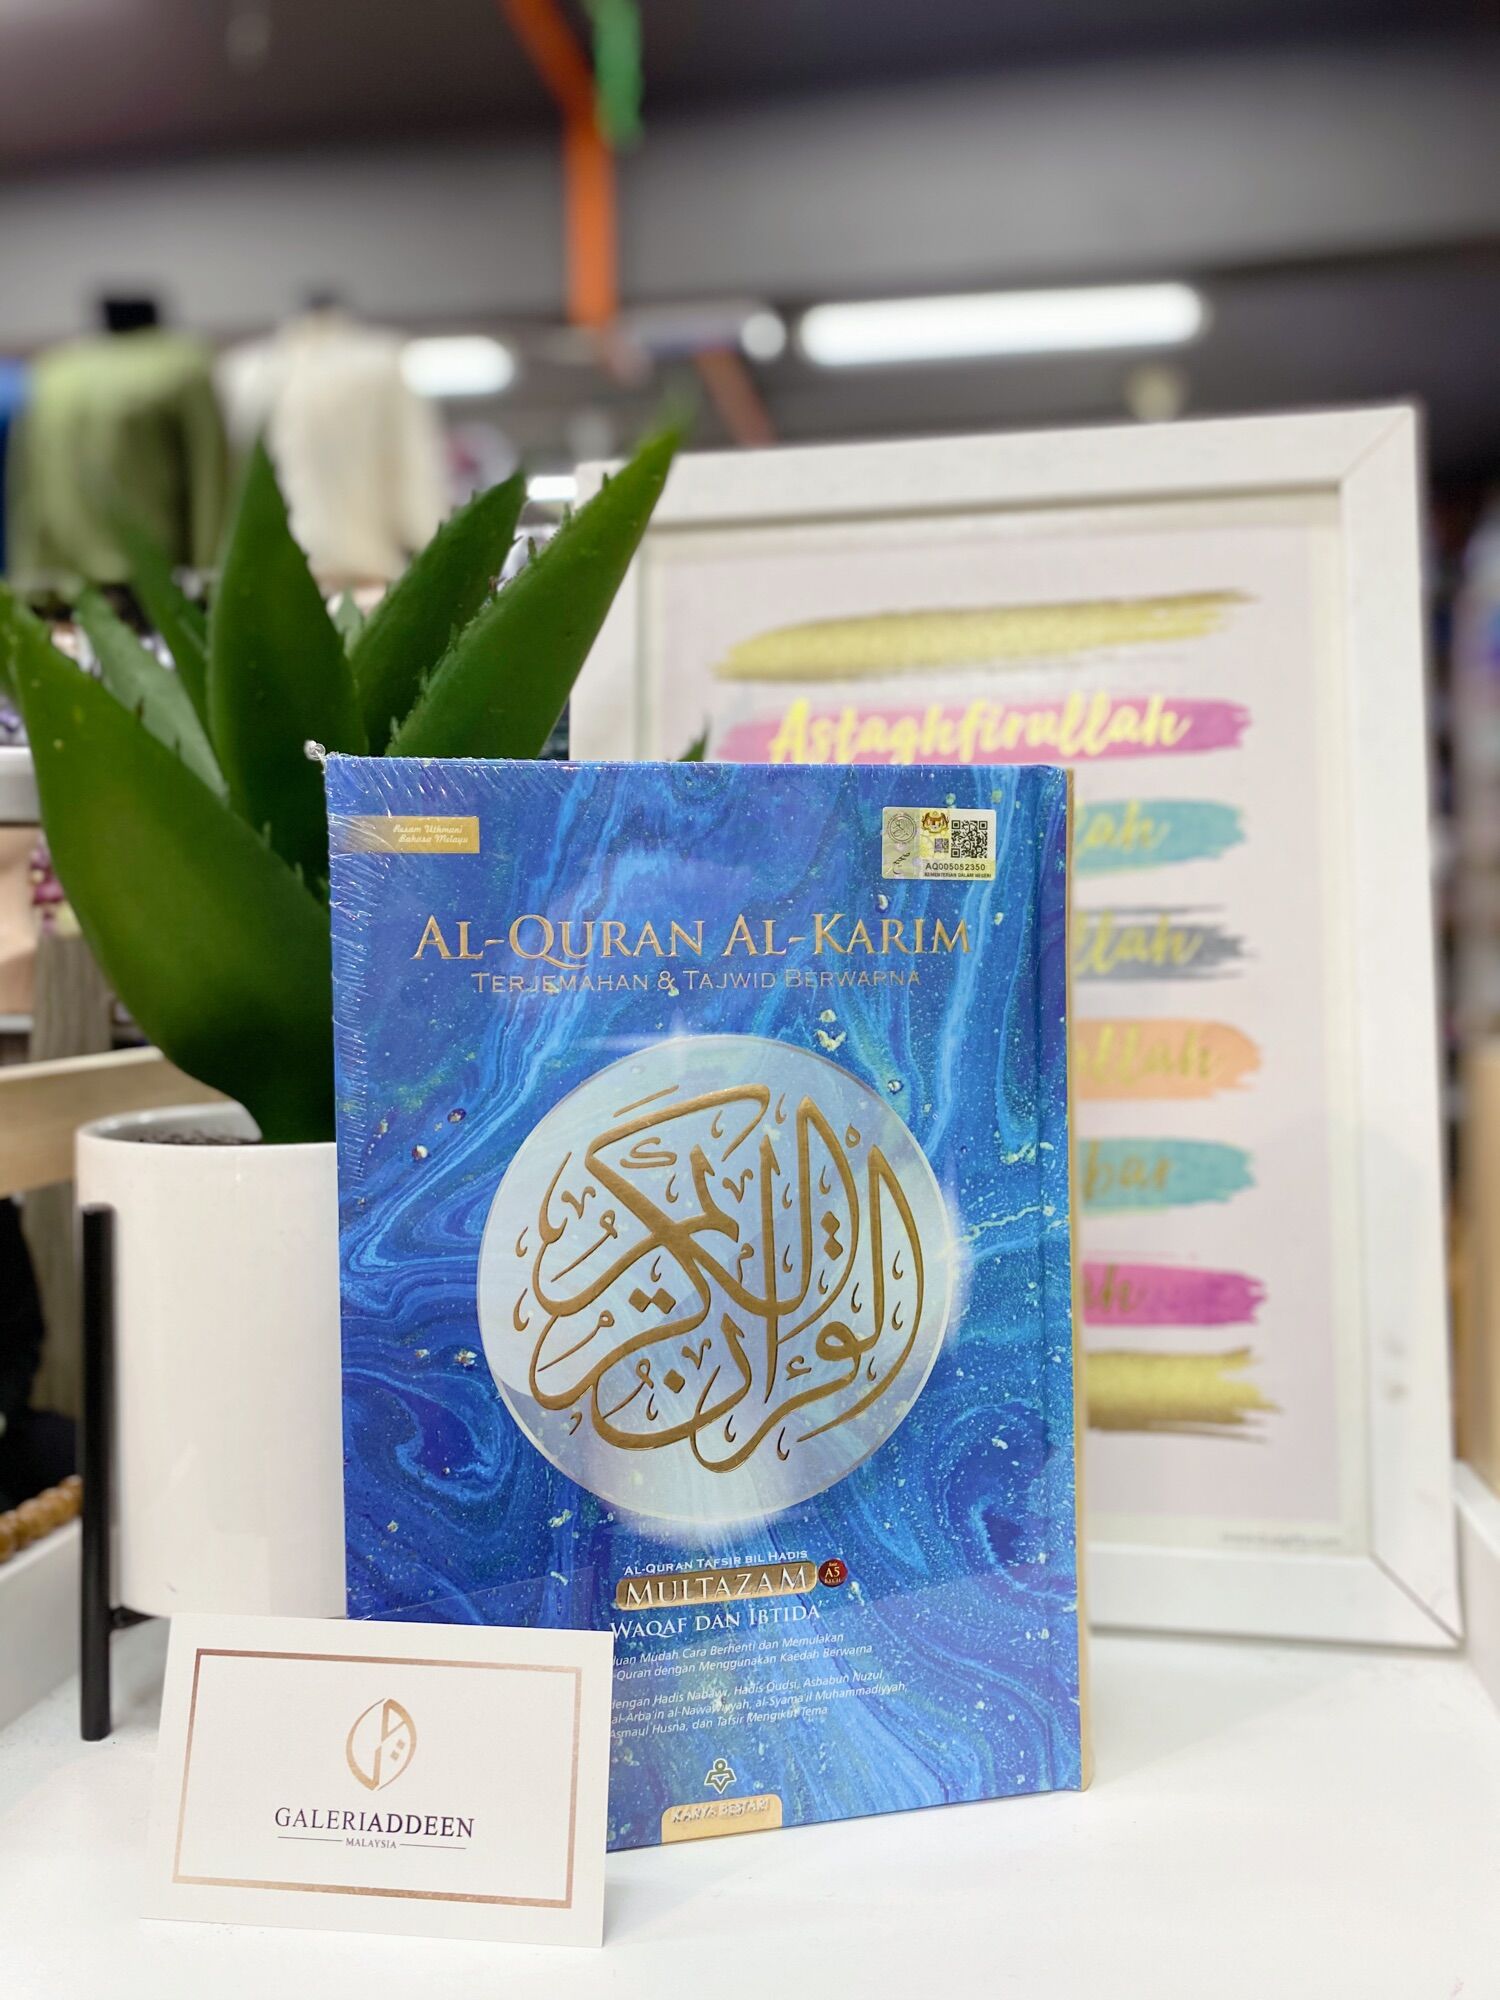 Astaghfirullah
lah
llah
ullah
bar
ah
Resam Uthmani
Bahasa Melayu
AQ005052350
KEMENTERIAN DALAM NEGERI
AL-QURAN AL-KARIM
TERJEMAHAN & TAJWID BERWARNA
القرآن الكريم
AL-QURAN TAFSIR BIL HADIS
MULTAZAM
A5
KECIL
WAQAF DAN IBTIDA'
duan Mudah Cara Berhenti dan Memulakan
-Quran dengan Menggunakan Kaedah Berwarna
dengan Hadis Nabawi, Hadis Qudsi, Asbabun Nuzul,
al-Arba'in al-Nawawiyyah, al-Syama'il Muhammadiyyah,
Asmaul Husna, dan Tafsir Mengikut Tema
KARYA BESTARI
GALERIADDEEN
MALAYSIA